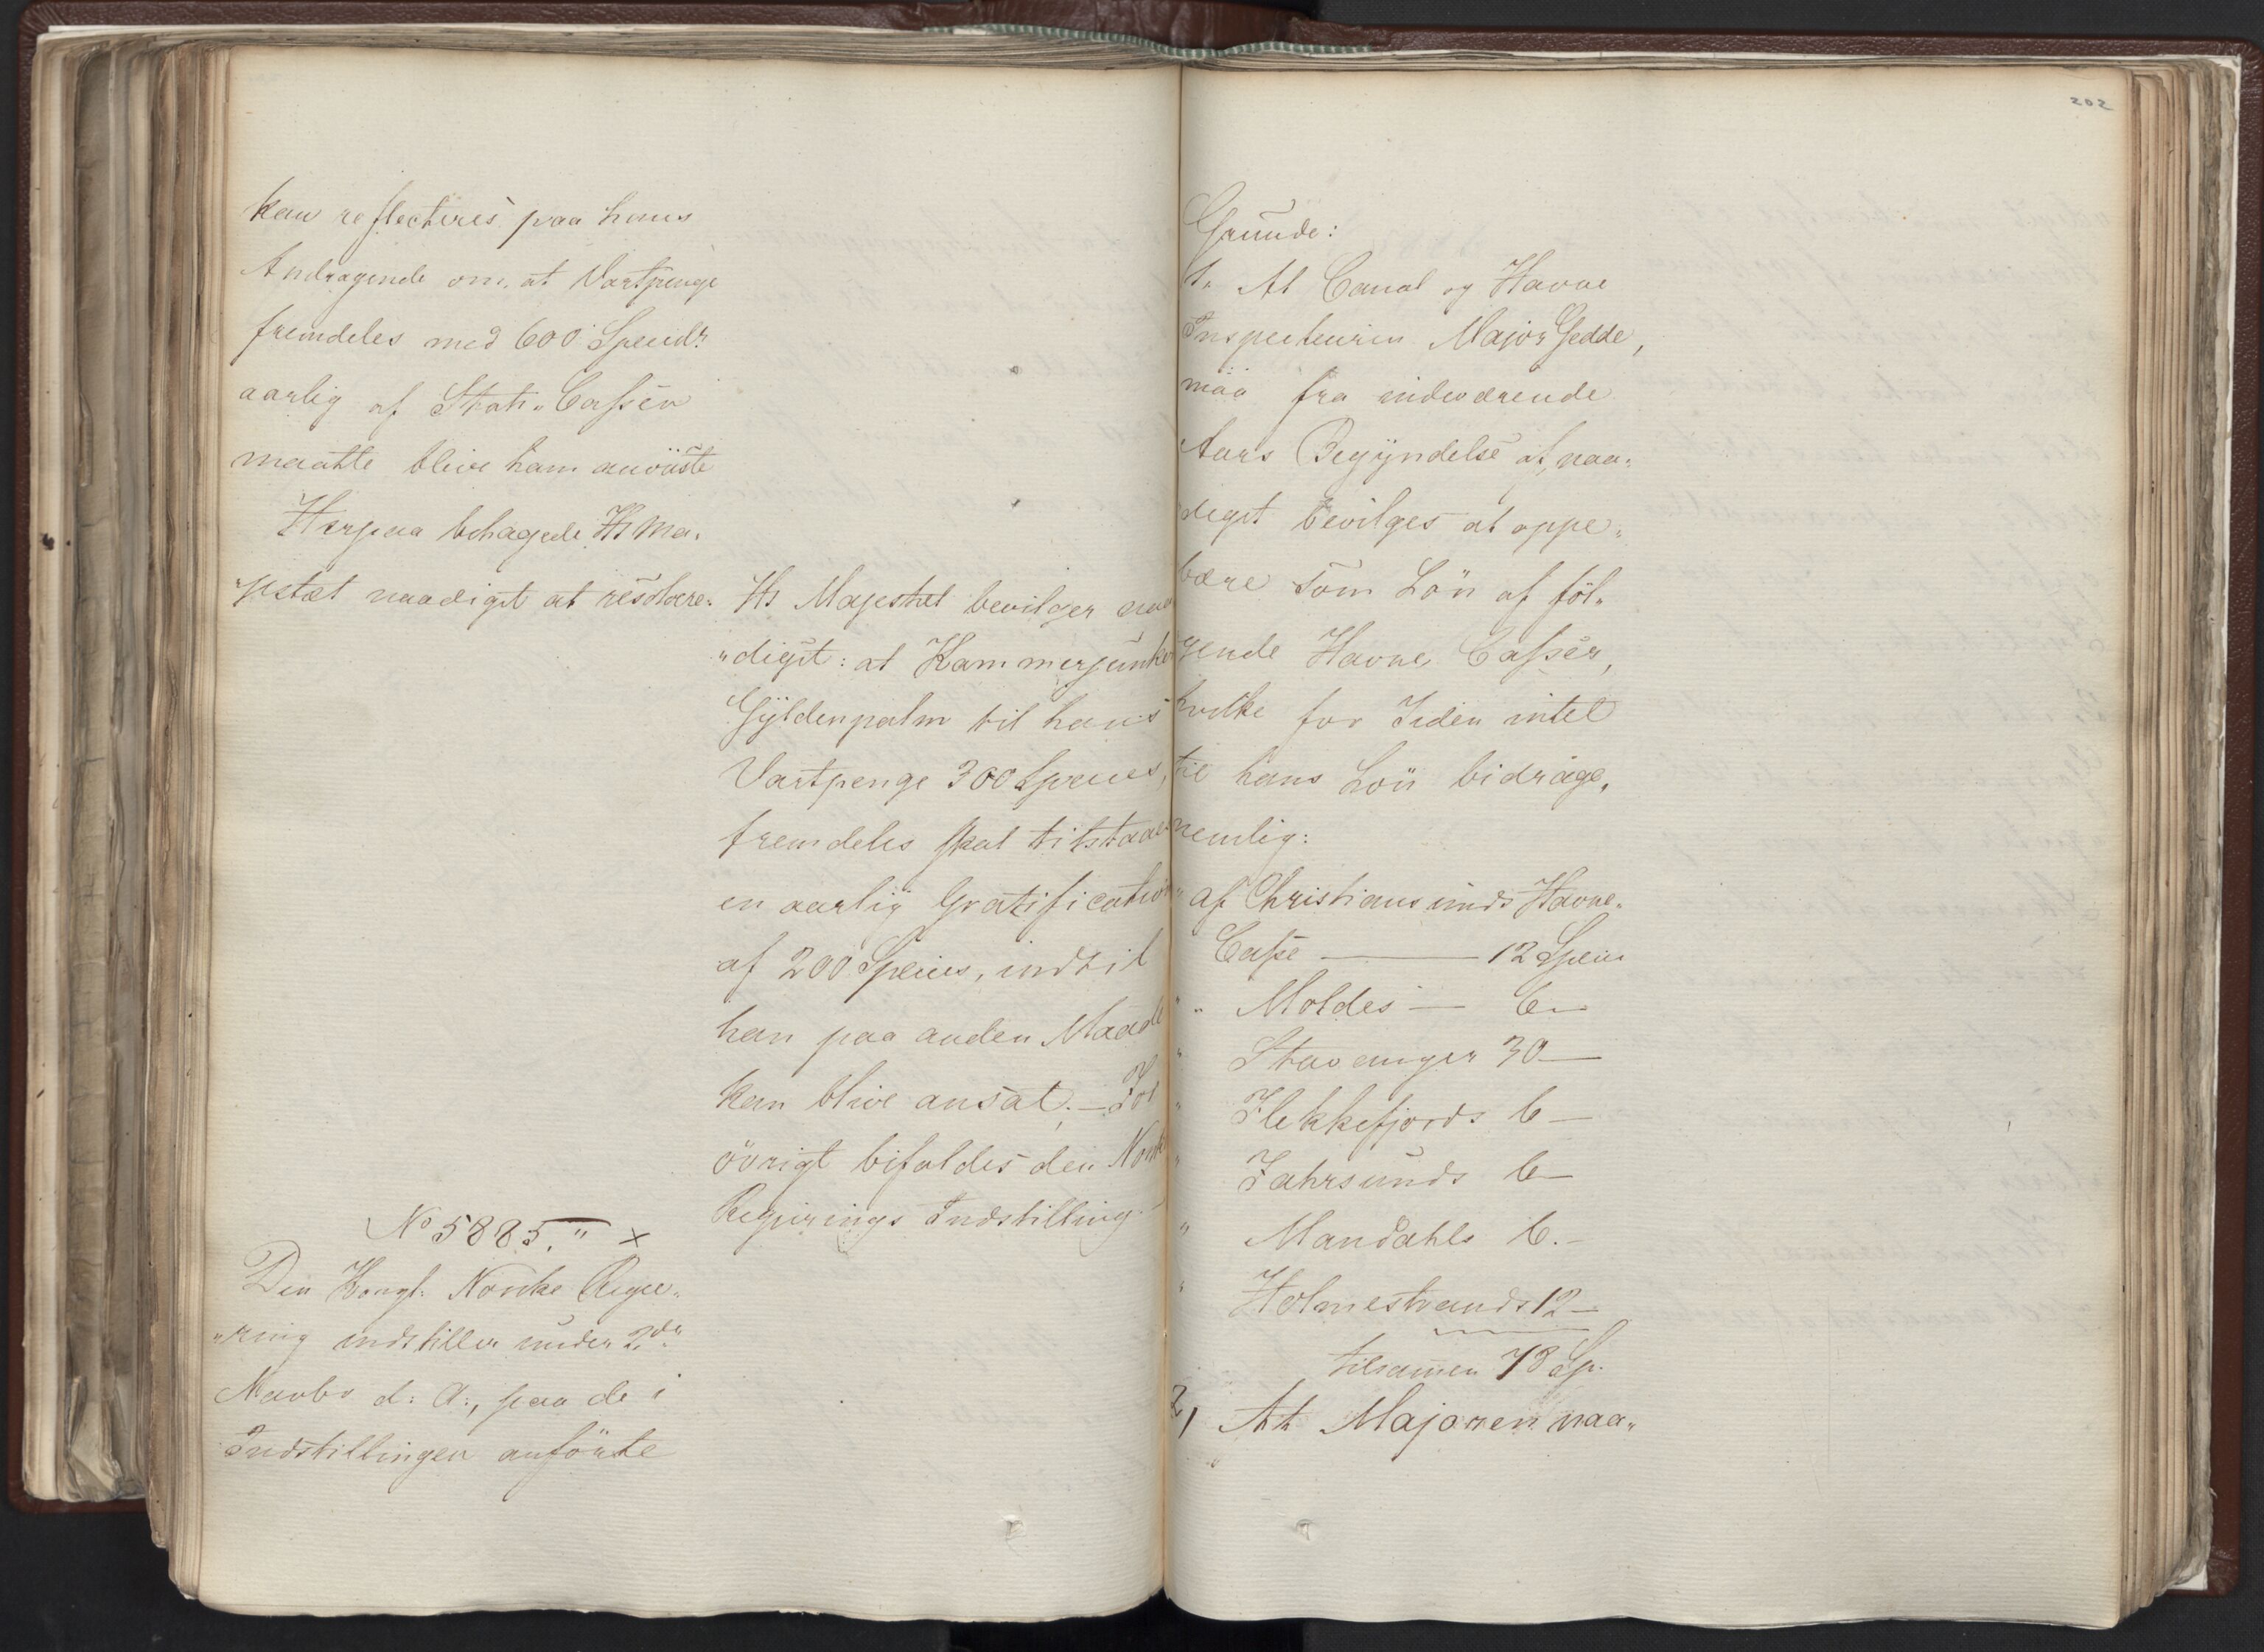 kan reflecteres paa hans
Andragende om, at Vartpenge
fremdeles med 600 Speendr
aarlig af Stats-Cassen
maatte blive ham anviiste
Herpaa behagede Hs Ma-
"jestæt naadigst at resolvere:
Hs Majestæt bevilger naa
"digst: at Kammerjunker
Gyldenpalm til hans
Vartpenge 300 Species,
fremdeles skal tilstaaes
en aarlig Gratification
af 200 Species, indtil
han paa anden Maade
kan blive ansat. — For
övrigt bifaldes den Norske
Regierings Indstilling.
No 5885." x
Den Kongl: Norske Regie-
"ring indstiller under 2den
Marts d: A:, paa de i
Indstillingen anförte
202
Grunde:
1. At Canal og Havne
Inspecteuren Major Gedde,
maa fra indeværende
Aars Begyndelse af, naa-
digst bevilges at oppe-
bære som Lön af föl-
gende Havne Casser,
hvilke for Tiden intet
til hans Lön bidrage,
nemlig:
" af Christiansunds Havne-
Casse — 12 Specier
" " Moldes — 6 —
" Stavanger 30 —
" Flekkefjords 6 —
" Fahrsunds 6 —
" Mandahls 6. —
" Holmestrands 12 —
tilsamen 78 Sp.
2, At Majoren naa-